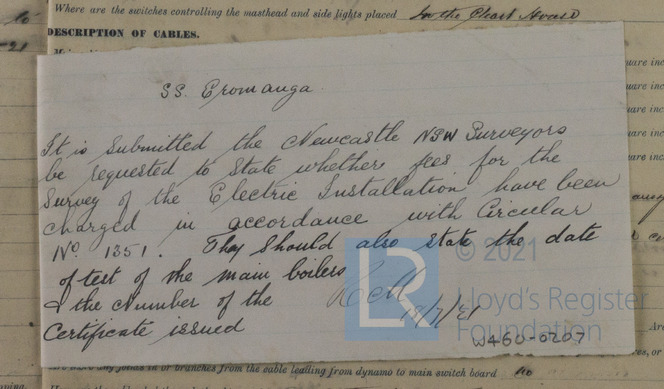 Where are the switches controlling the masthead and side lights placed In the Chart House
DESCRIPTION OF CABLES.
S.S. Eromanga.
It is submitted the Newcastle NSW Surveyors
be requested to state whether fees for the
Survey of the Electric Installation have been
charged in accordance with Circular
No. 1351. They should also state the date
of test of the main boilers
& the Number of the
Certificate issued
18/7/21
© 2021
Lloyd's Register
Foundation
W460-0207
or branches from the cable leading from dynamo to main switch board no